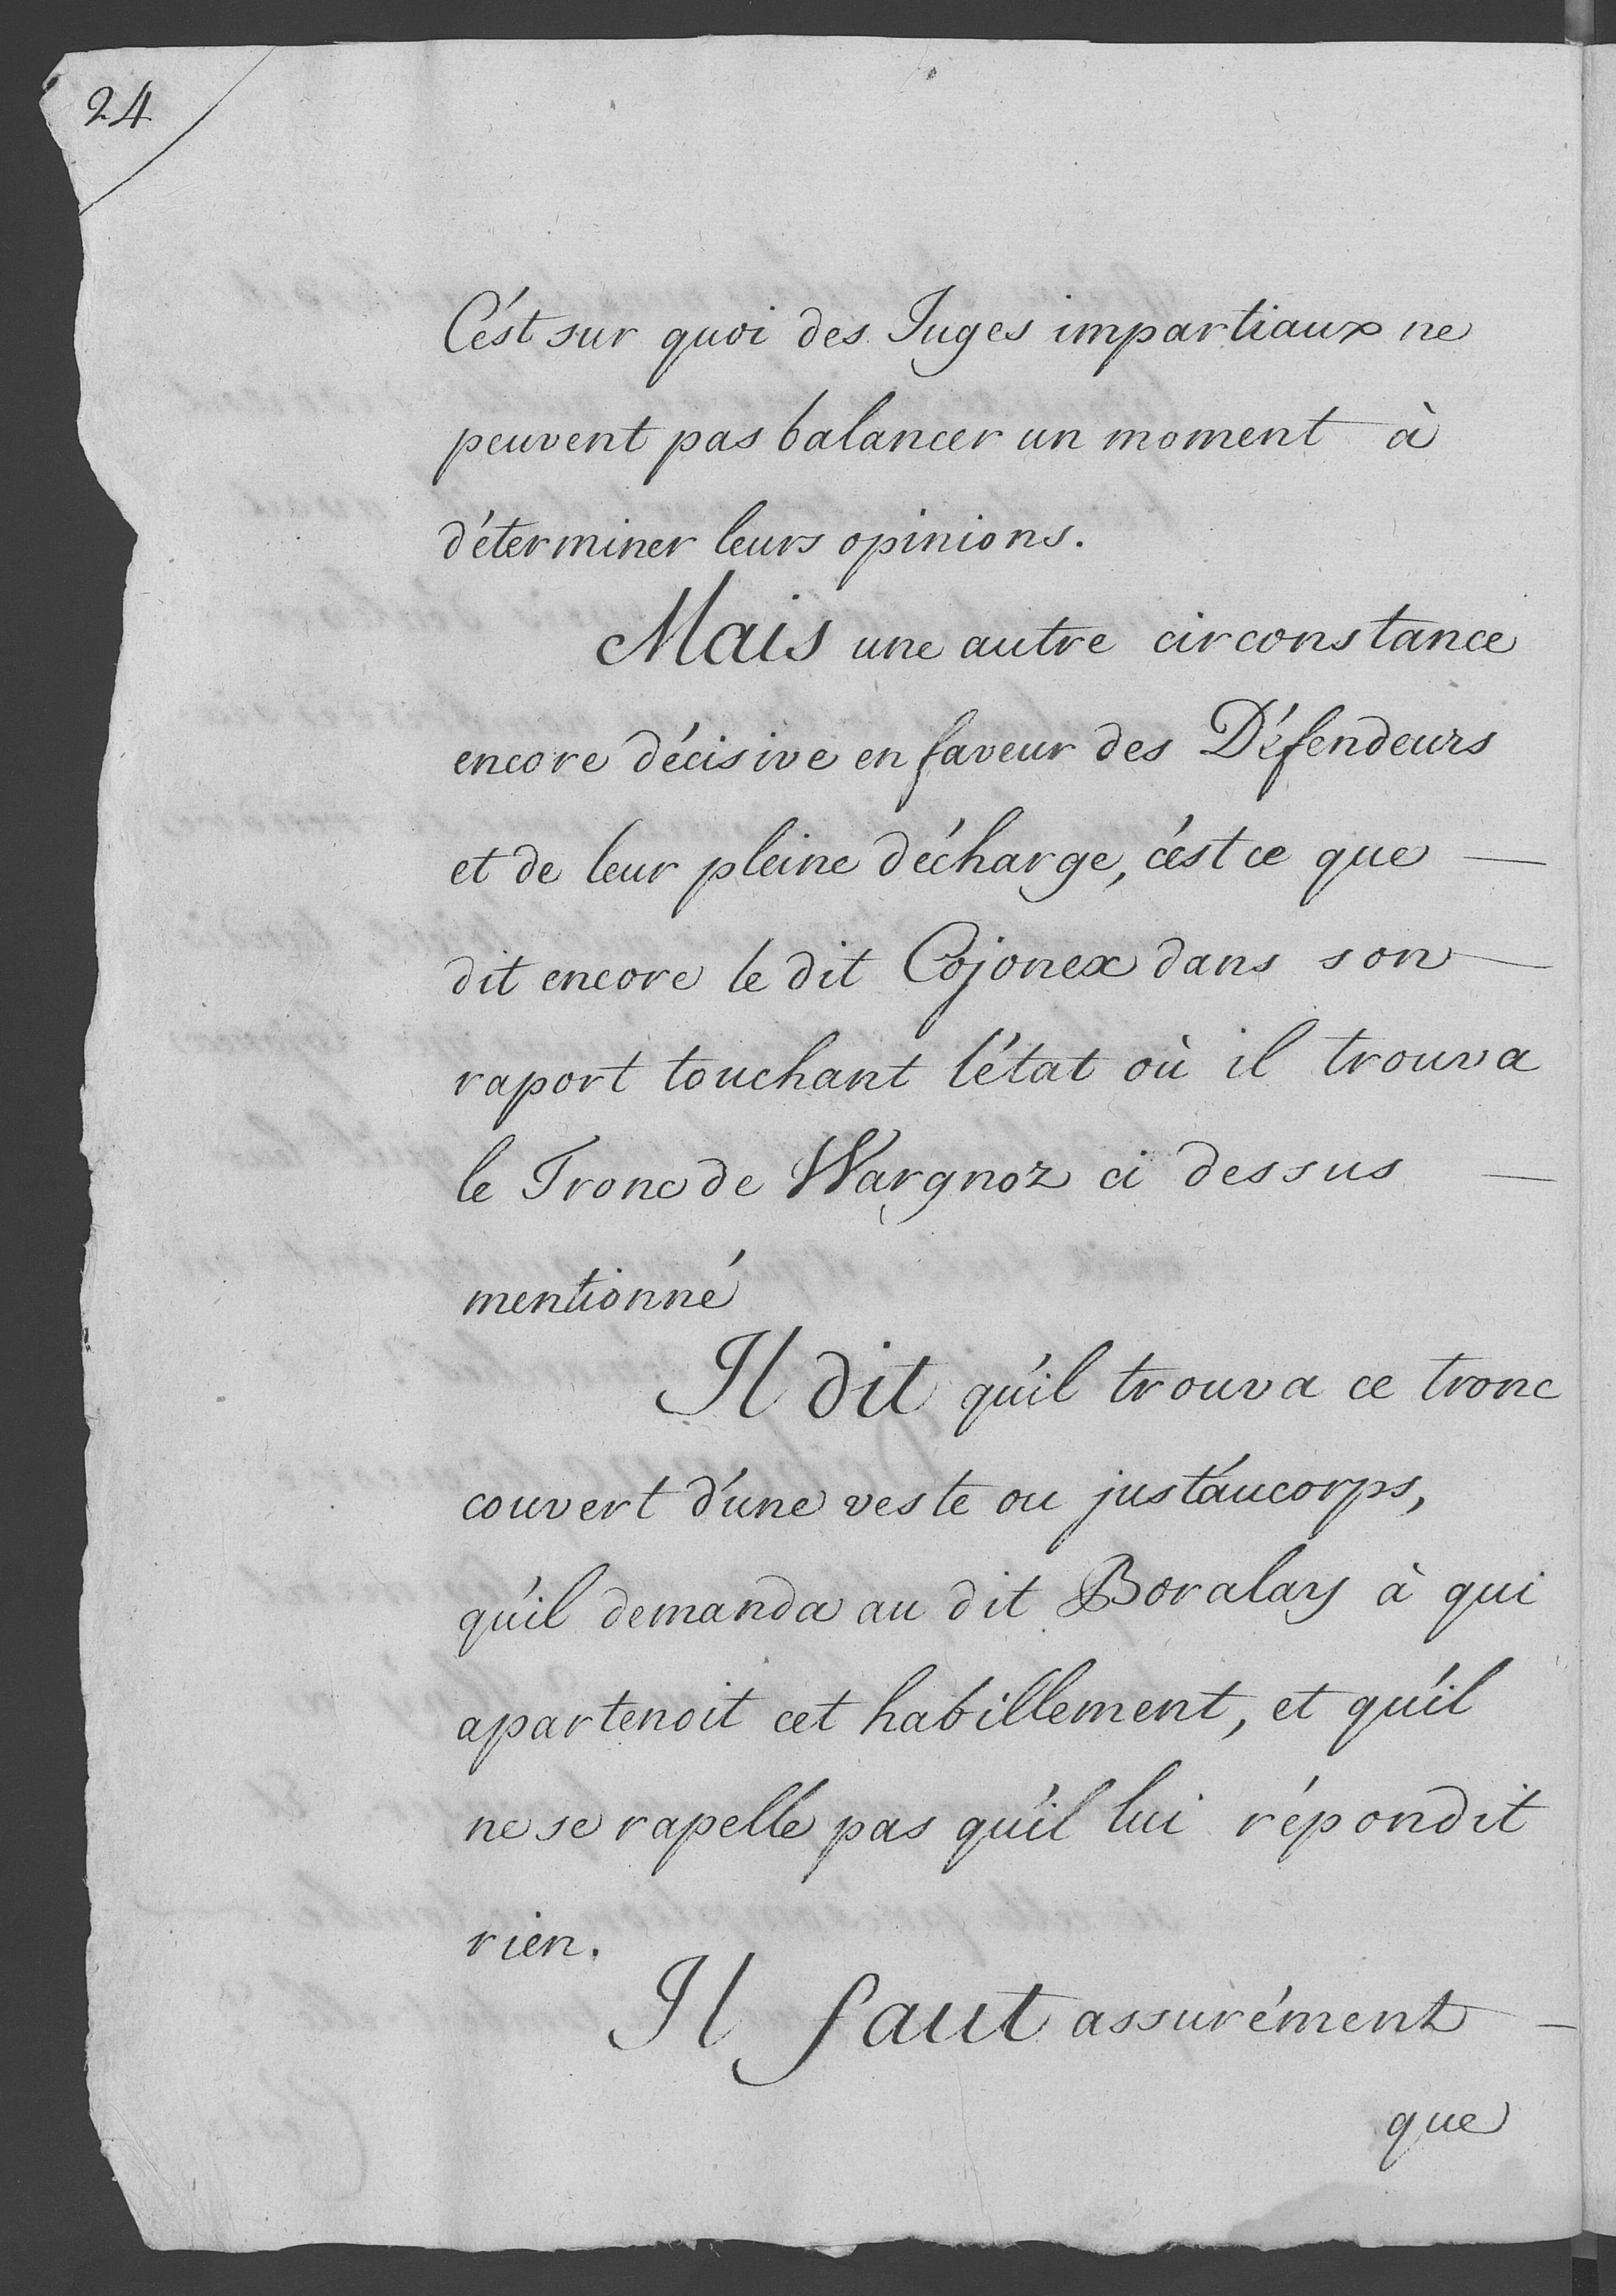 24
C'ést sur quoi des Juges impartiaux ne
peuvent pas balancer un moment à
déterminer leurs opinions.
Mais une autre circonstance
encore décisive en faveur des Défendeurs
et de leur pleine décharge, c'ést ce que —
dit encore le dit Cojonex dans son —
raport touchant l'état où il trouva
le Tronc de Wargnoz ci dessus —
mentionné
Il dit qu'il trouva ce tronc
couvert d'une veste ou just'aucorps,
qu'il demanda au dit Boralay à qui
apartenoit cet habillement, et qu'il
ne se rapelle pas qu'il lui répondit
rien.
Il faut assurément —
que